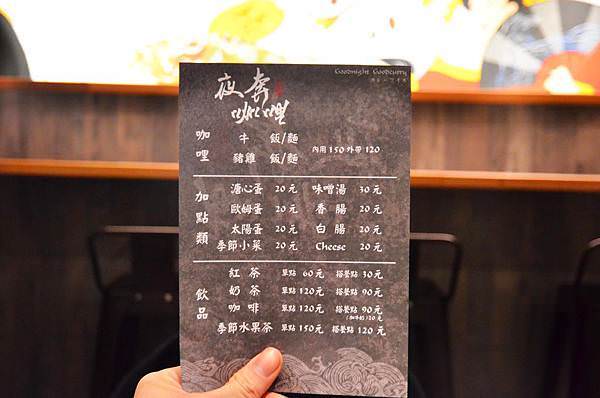 夜奔
咖哩
Goodnight Goodcurry
咖哩
牛 飯/麵
豬雞 飯/麵
內用150外帶120
加點類
溏心蛋 20元 味噌湯 30元
歐姆蛋 20元 香腸 20元
太陽蛋 20元 白腸 20元
季節小菜 20元 Cheese 20元
飲品
紅茶 單點 60元 搭餐點 30元
奶茶 單點120元 搭餐點 90元
咖啡 單點120元 搭餐點 90元
季節水果茶 單點150元 搭餐點 120元